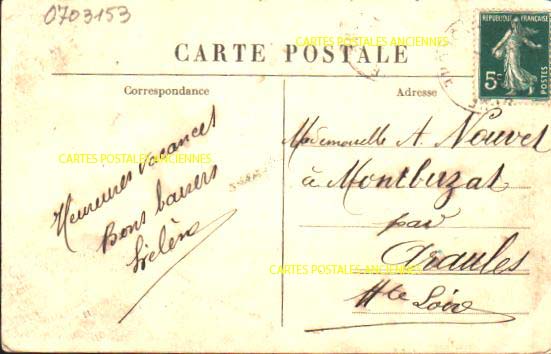 0703153
CARTES POSTALES ANCIENNES
CARTE POSTALE
RÉPUBLIQUE FRANÇAISE
5c
POSTES
Correspondance
Adresse
CARTES POSTALES ANCIENNES
Heureuses vacances
Bons baisers
Hélène
Mademoiselle A. Nouvet
à Montbuzat
par
Araules
Hte Loire
CARTES POSTALES ANCIENNES